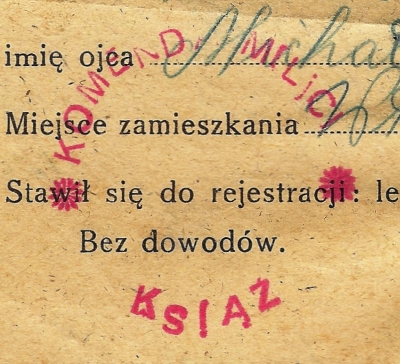 imię ojca Michał
Miejsce zamieszkania
Stawił się do rejestracji: le
Bez dowodów.
KOMENDA MILICJI
KSIĄŻ